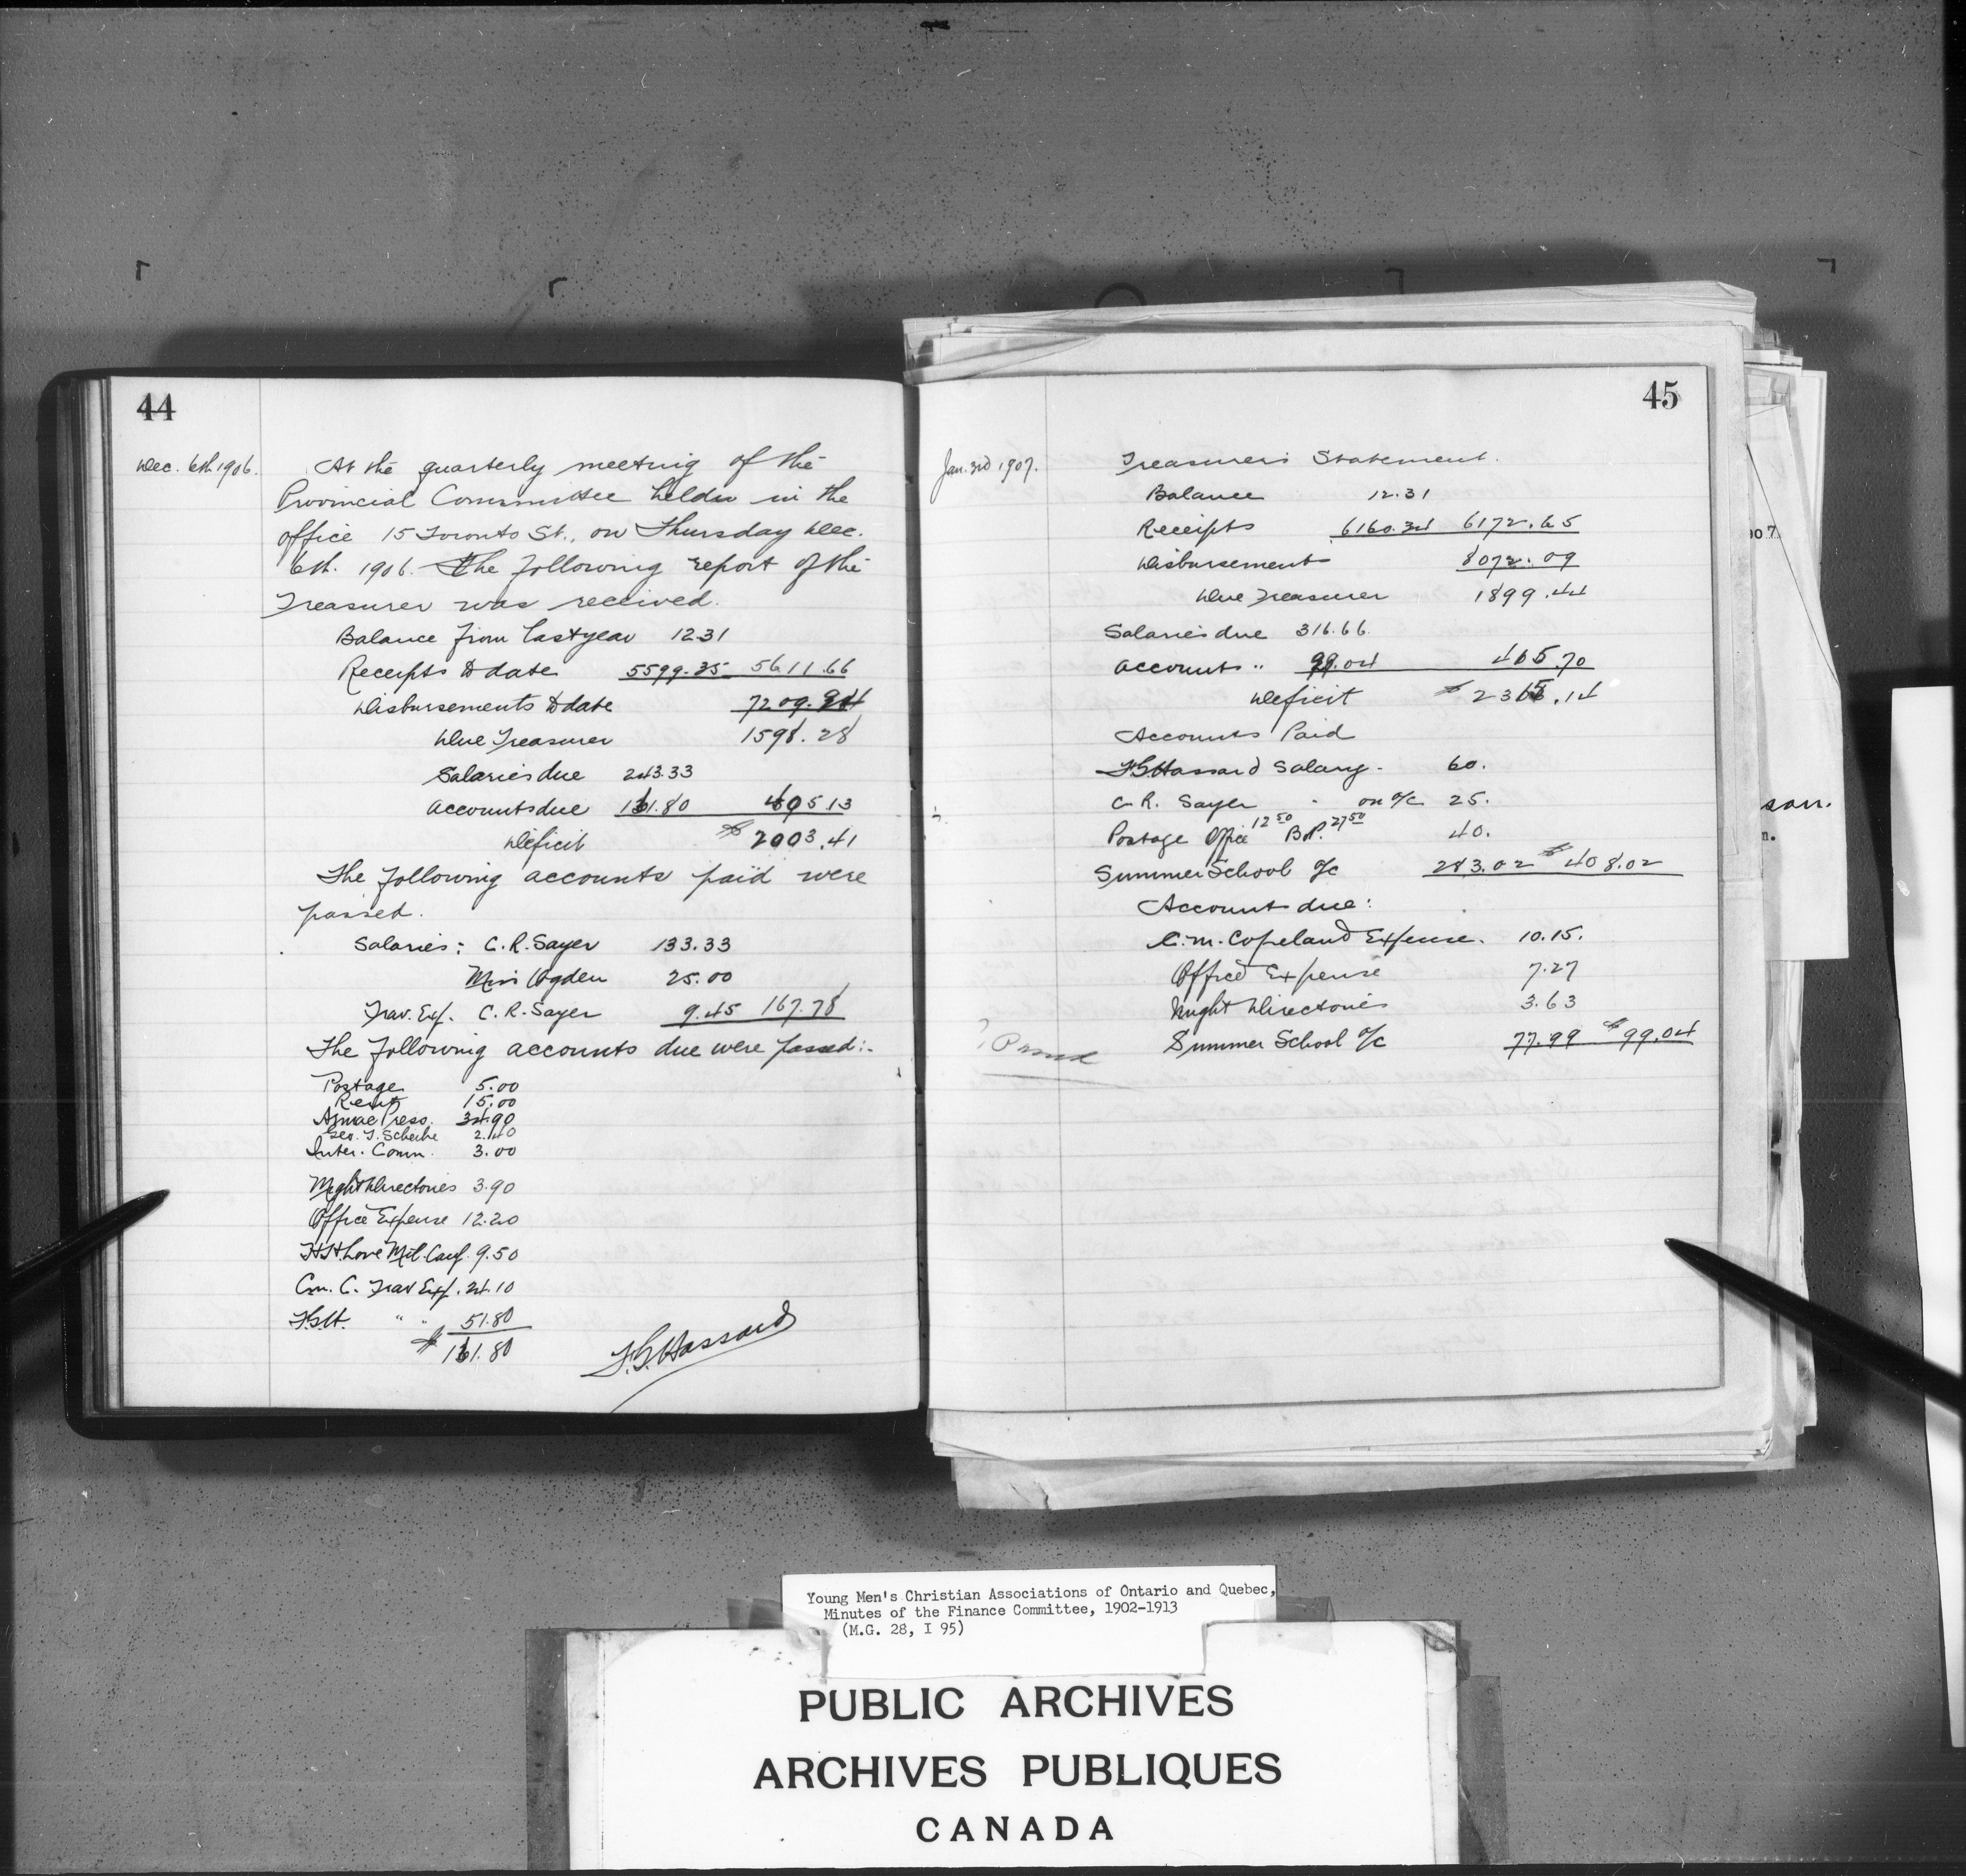 44
Dec. 6th 1906.
At the quarterly meeting of the
Provincial Committee helden in the
office 15 Toronto St., on Thursday Dec.
6th. 1906. The following report of the
Treasurer was received.
Balance from last year 12.31
Receipts to date 5599.35 5611.66
Disbursements to date 7209.94
Due Treasurer 1598.28
Salaries due 243.33
Accounts due 161.80 405.13
Deficit $2003.41
The following accounts paid were
passed.
Salaries: C.R. Sayer 133.33
Miss Ogden 25.00
Trav. Exp. C.R. Sayer 9.45 167.78
The following accounts due were passed:-
Postage 5.00
Rent 15.00
Press. 34.90
Geo. T. 2.40
Inter. Comm. 3.00
Might Directories 3.90
Office Expense 12.20
H.H. Love Mil. Camp. 9.50
C.m. C. Trav Exp. 24.10
F.G.H. " " 51.80
$ 161.80
F.G. Hassard
45
Jan. 3rd 1907.
Treasurer's Statement.
Balance 12.31
Receipts 6160.34 6172.65
Disbursements 8072.09
Due Treasurer 1899.44
Salaries due 316.66.
Accounts " 99.04 465.70
Deficit $2365.14
Accounts Paid
F.G. Hassard Salary - 60.
C.R. Sayer " on a/c 25.
Postage Office 12 50 B.P. 27 50 40.
Summer School a/c 283.02 $408.02
Account due:
C.M. Copeland Expense. 10.15.
Office Expense 7.27
Might Directories 3.63
Summer School a/c 77.99 $99.04
no 7.
son.
n.
Young Men's Christian Associations of Ontario and Quebec,
Minutes of the Finance Committee, 1902-1913
(M.G. 28, I 95)
PUBLIC ARCHIVES
ARCHIVES PUBLIQUES
CANADA